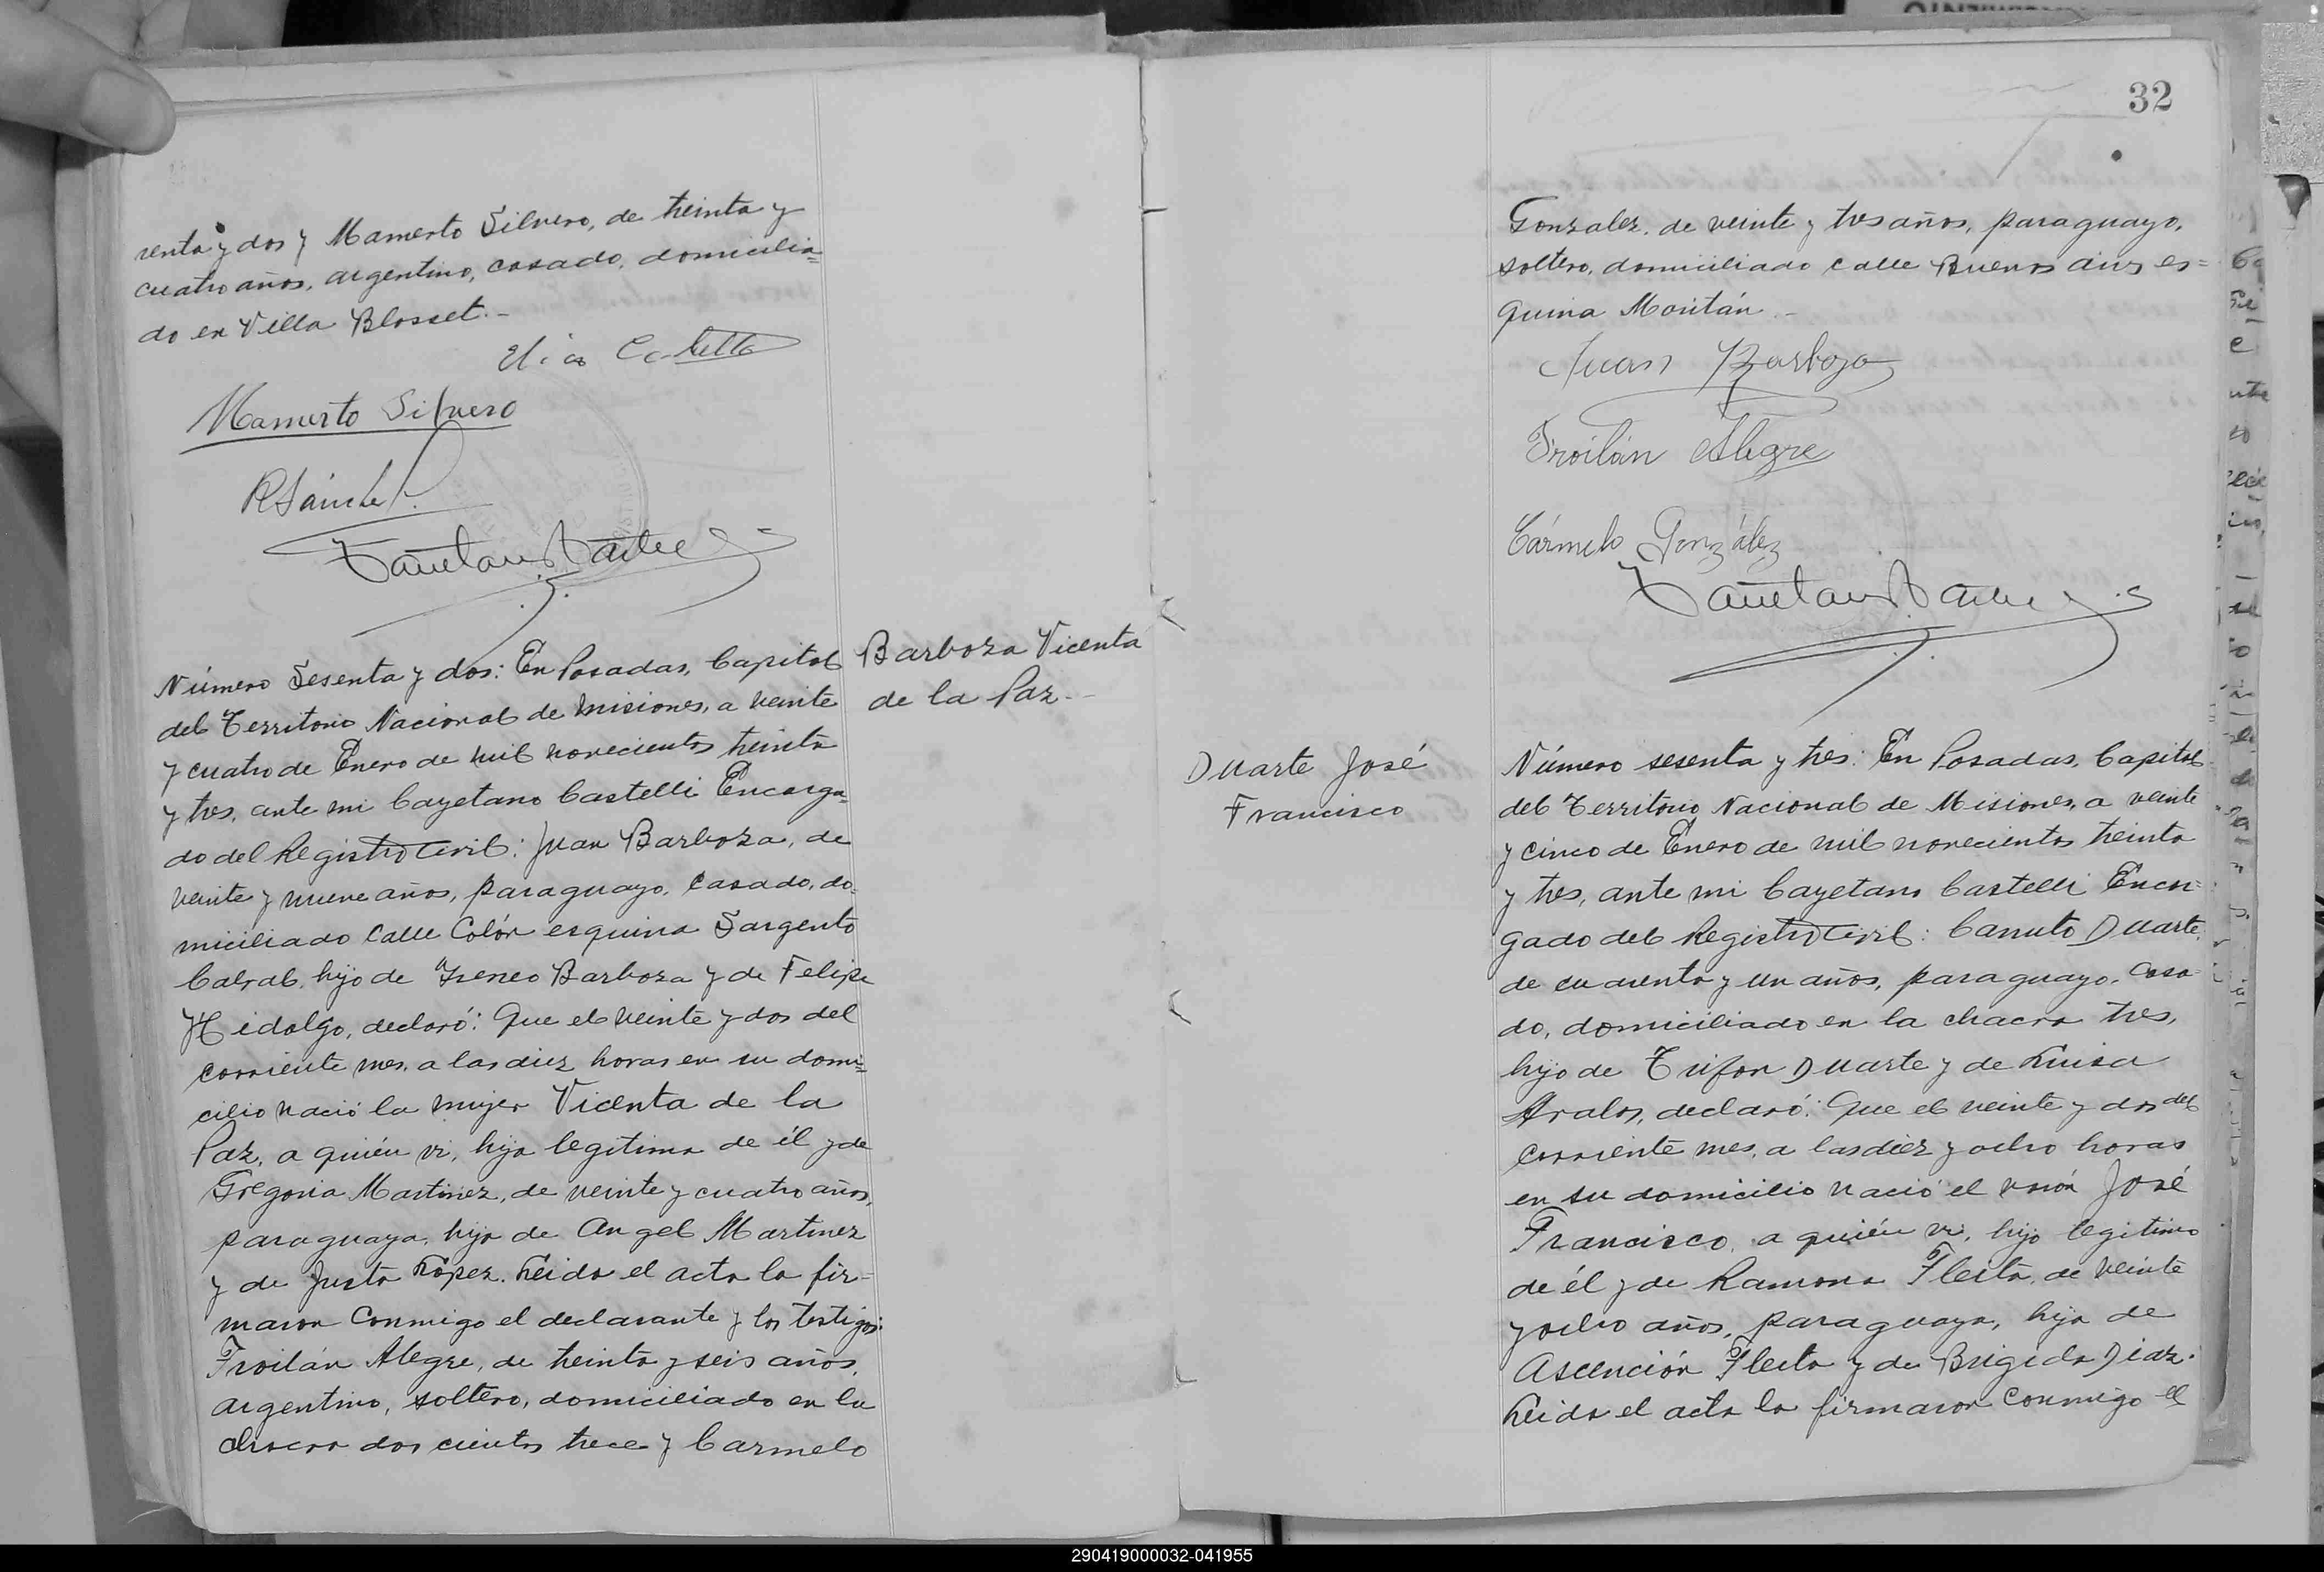 renta y dos y Mamerto Silvero, de treinta y
cuatro años, argentino, casado, domicilia=
do en Villa Blosset.-
Mamerto Silvero
Número Sesenta y dos: En Posadas, Capital
del Territorio Nacional de Misiones, a veinte
y cuatro de Enero de mil novecientos treinta
y tres, ante mi Cayetano Castelli Encarga=
do del Registro Civil: Juan Barboza, de
veinte y nueve años, paraguayo, casado, do=
miciliado calle Colón esquina Sargento
Cabral, hijo de Ireneo Barboza y de Felipa
Hidalgo, declaró: Que el veinte y dos del
corriente mes, a las diez horas en su domi=
cilio nació la mujer Vicenta de la
Paz, a quién vi, hija legitima de él y de
Gregoria Martinez, de veinte y cuatro años,
paraguaya, hija de Angel Martinez
y de Justa López. Leida el acta la fir=
maron conmigo el declarante y los testigos:
Froilán Alegre, de treinta y seis años,
argentino, soltero, domiciliado en la
chacra dos cientos trece y Carmelo
Barboza Vicenta
de la Paz.-
32
Gonzalez, de veinte y tres años, paraguayo,
soltero, domiciliado calle Buenos aires es=
quina Moritán.-
Juan Barboza
Froilán Alegre
Cármelo González
Duarte José
Francisco
Número sesenta y tres: En Posadas, Capital
del Territorio Nacional de Misiones, a veinte
y cinco de Enero de mil novecientos treinta
y tres, ante mi Cayetano Castelli Encar=
gado del Registro Civil: Canuto Duarte,
de cuarenta y un años, paraguayo, casa=
do, domiciliado en la chacra tres,
hijo de Trifon Duarte y de Luisa
Avalos, declaró: Que el veinte y dos del
corriente mes, a las diez y ocho horas
en su domicilio nació el varón José
Francisco, a quién vi, hijo legitimo
de él y de Ramona Fleita, de veinte
y ocho años, paraguaya, hija de
Ascención Fleita y de Brigida Diaz.
Leida el acta la firmaron conmigo el
290419000032-041955